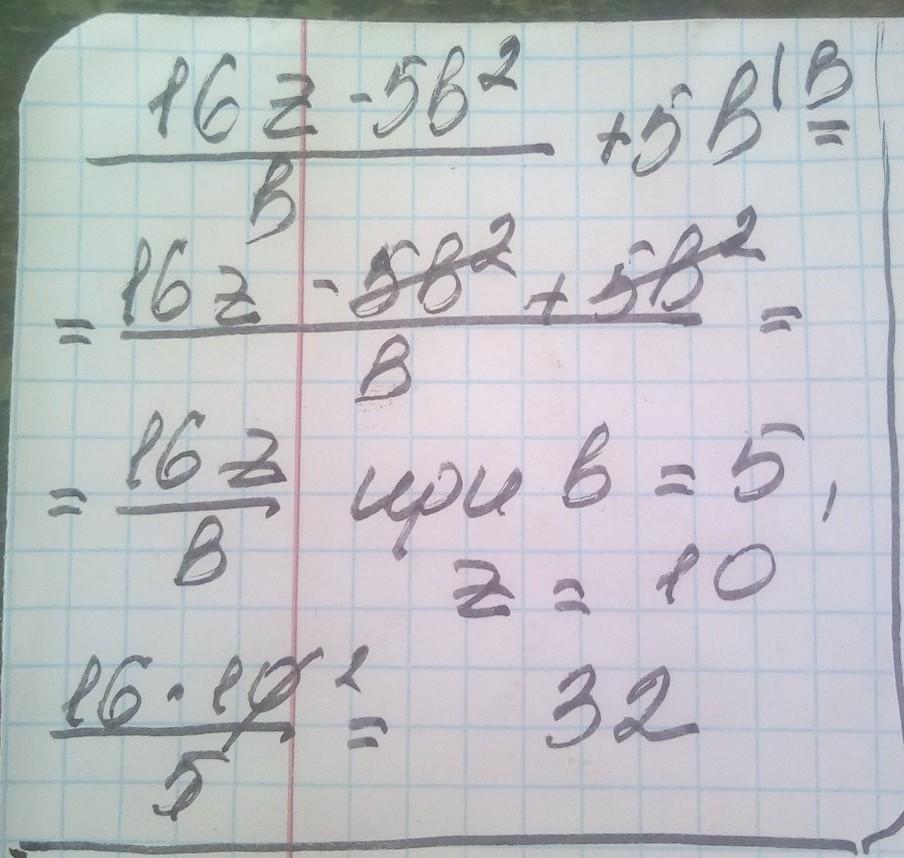 16z - 5b² / b + 5b^(b =
= 16z - 5b² + 5b² / b =
= 16z / b при b = 5,
z = 10
16 · 10² / 5 = 32